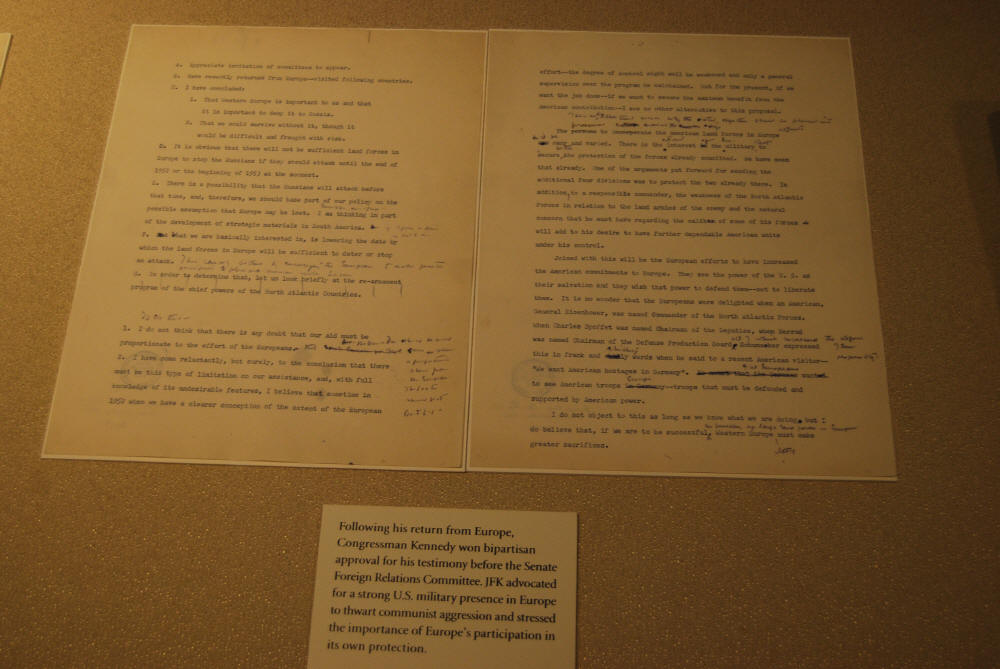 A. Appreciate invitation of committees to appear.
B. Have recently returned from Europe--visited following countries.
C. I have concluded:
1. That Western Europe is important to us and that
it is important to deny it to Russia.
2. That we could survive without it, though it
would be difficult and fraught with risk.
D. It is obvious that there will not be sufficient land forces in
Europe to stop the Russians if they should attack until the end of
1952 or the beginning of 1953 at the moment.
E. There is a possibility that the Russians will attack before
that time, and, therefore, we should base part of our policy on the
possible assumption that Europe may be lost. I am thinking in part
of the development of strategic materials in South America.
F. What we are basically interested in, is lowering the date by
which the land forces in Europe will be sufficient to deter or stop
an attack.
G. In order to determine that, let us look briefly at the re-armament
program of the chief powers of the North Atlantic Countries.
1. I do not think that there is any doubt that our aid must be
proportionate to the effort of the Europeans.
2. I have come reluctantly, but surely, to the conclusion that there
must be this type of limitation on our assistance, and, with full
knowledge of its undesirable features, I believe that question in
1952 when we have a clearer conception of the extent of the European
effort--the degree of control might well be weakened and only a general
supervision over the program be maintained. But for the present, if we
want the job done--if we want to secure the maximum benefit from the
American contribution--I see no other alternative to this proposal.
The persons to incorporate the American land forces in Europe
very and varied. There is the interest of the military to
secure the protection of the forces already committed. We have seen
that already. One of the arguments put forward for sending the
additional four divisions was to protect the two already there. In
addition, to a responsible commander, the weakness of the North Atlantic
Forces in relation to the land armies of the enemy and the natural
concern that he must have regarding the calibre of some of his forces
will add to his desire to have further dependable American units
under his control.
Joined with this will be the European efforts to have increased
the American commitments to Europe. They see the power of the U. S. as
their salvation and they wish that power to defend them--not to liberate
them. It is no wonder that the Europeans were delighted when an American,
General Eisenhower, was named Commander of the North Atlantic Forces.
When Charles Spoffet was named Chairman of the Deputies, when Herrod
was named Chairman of the Defense Production Board, Schumaker expressed
this in frank and words when he said to a recent American visitor--
"We want American hostages in Germany".
Europe
to see American troops in Germany--troops that must be defended and
supported by American power.
I do not object to this as long as we know what we are doing, but I
do believe that, if we are to be successful, Western Europe must make
greater sacrifices.
Following his return from Europe,
Congressman Kennedy won bipartisan
approval for his testimony before the Senate
Foreign Relations Committee. JFK advocated
for a strong U.S. military presence in Europe
to thwart communist aggression and stressed
the importance of Europe's participation in
its own protection.